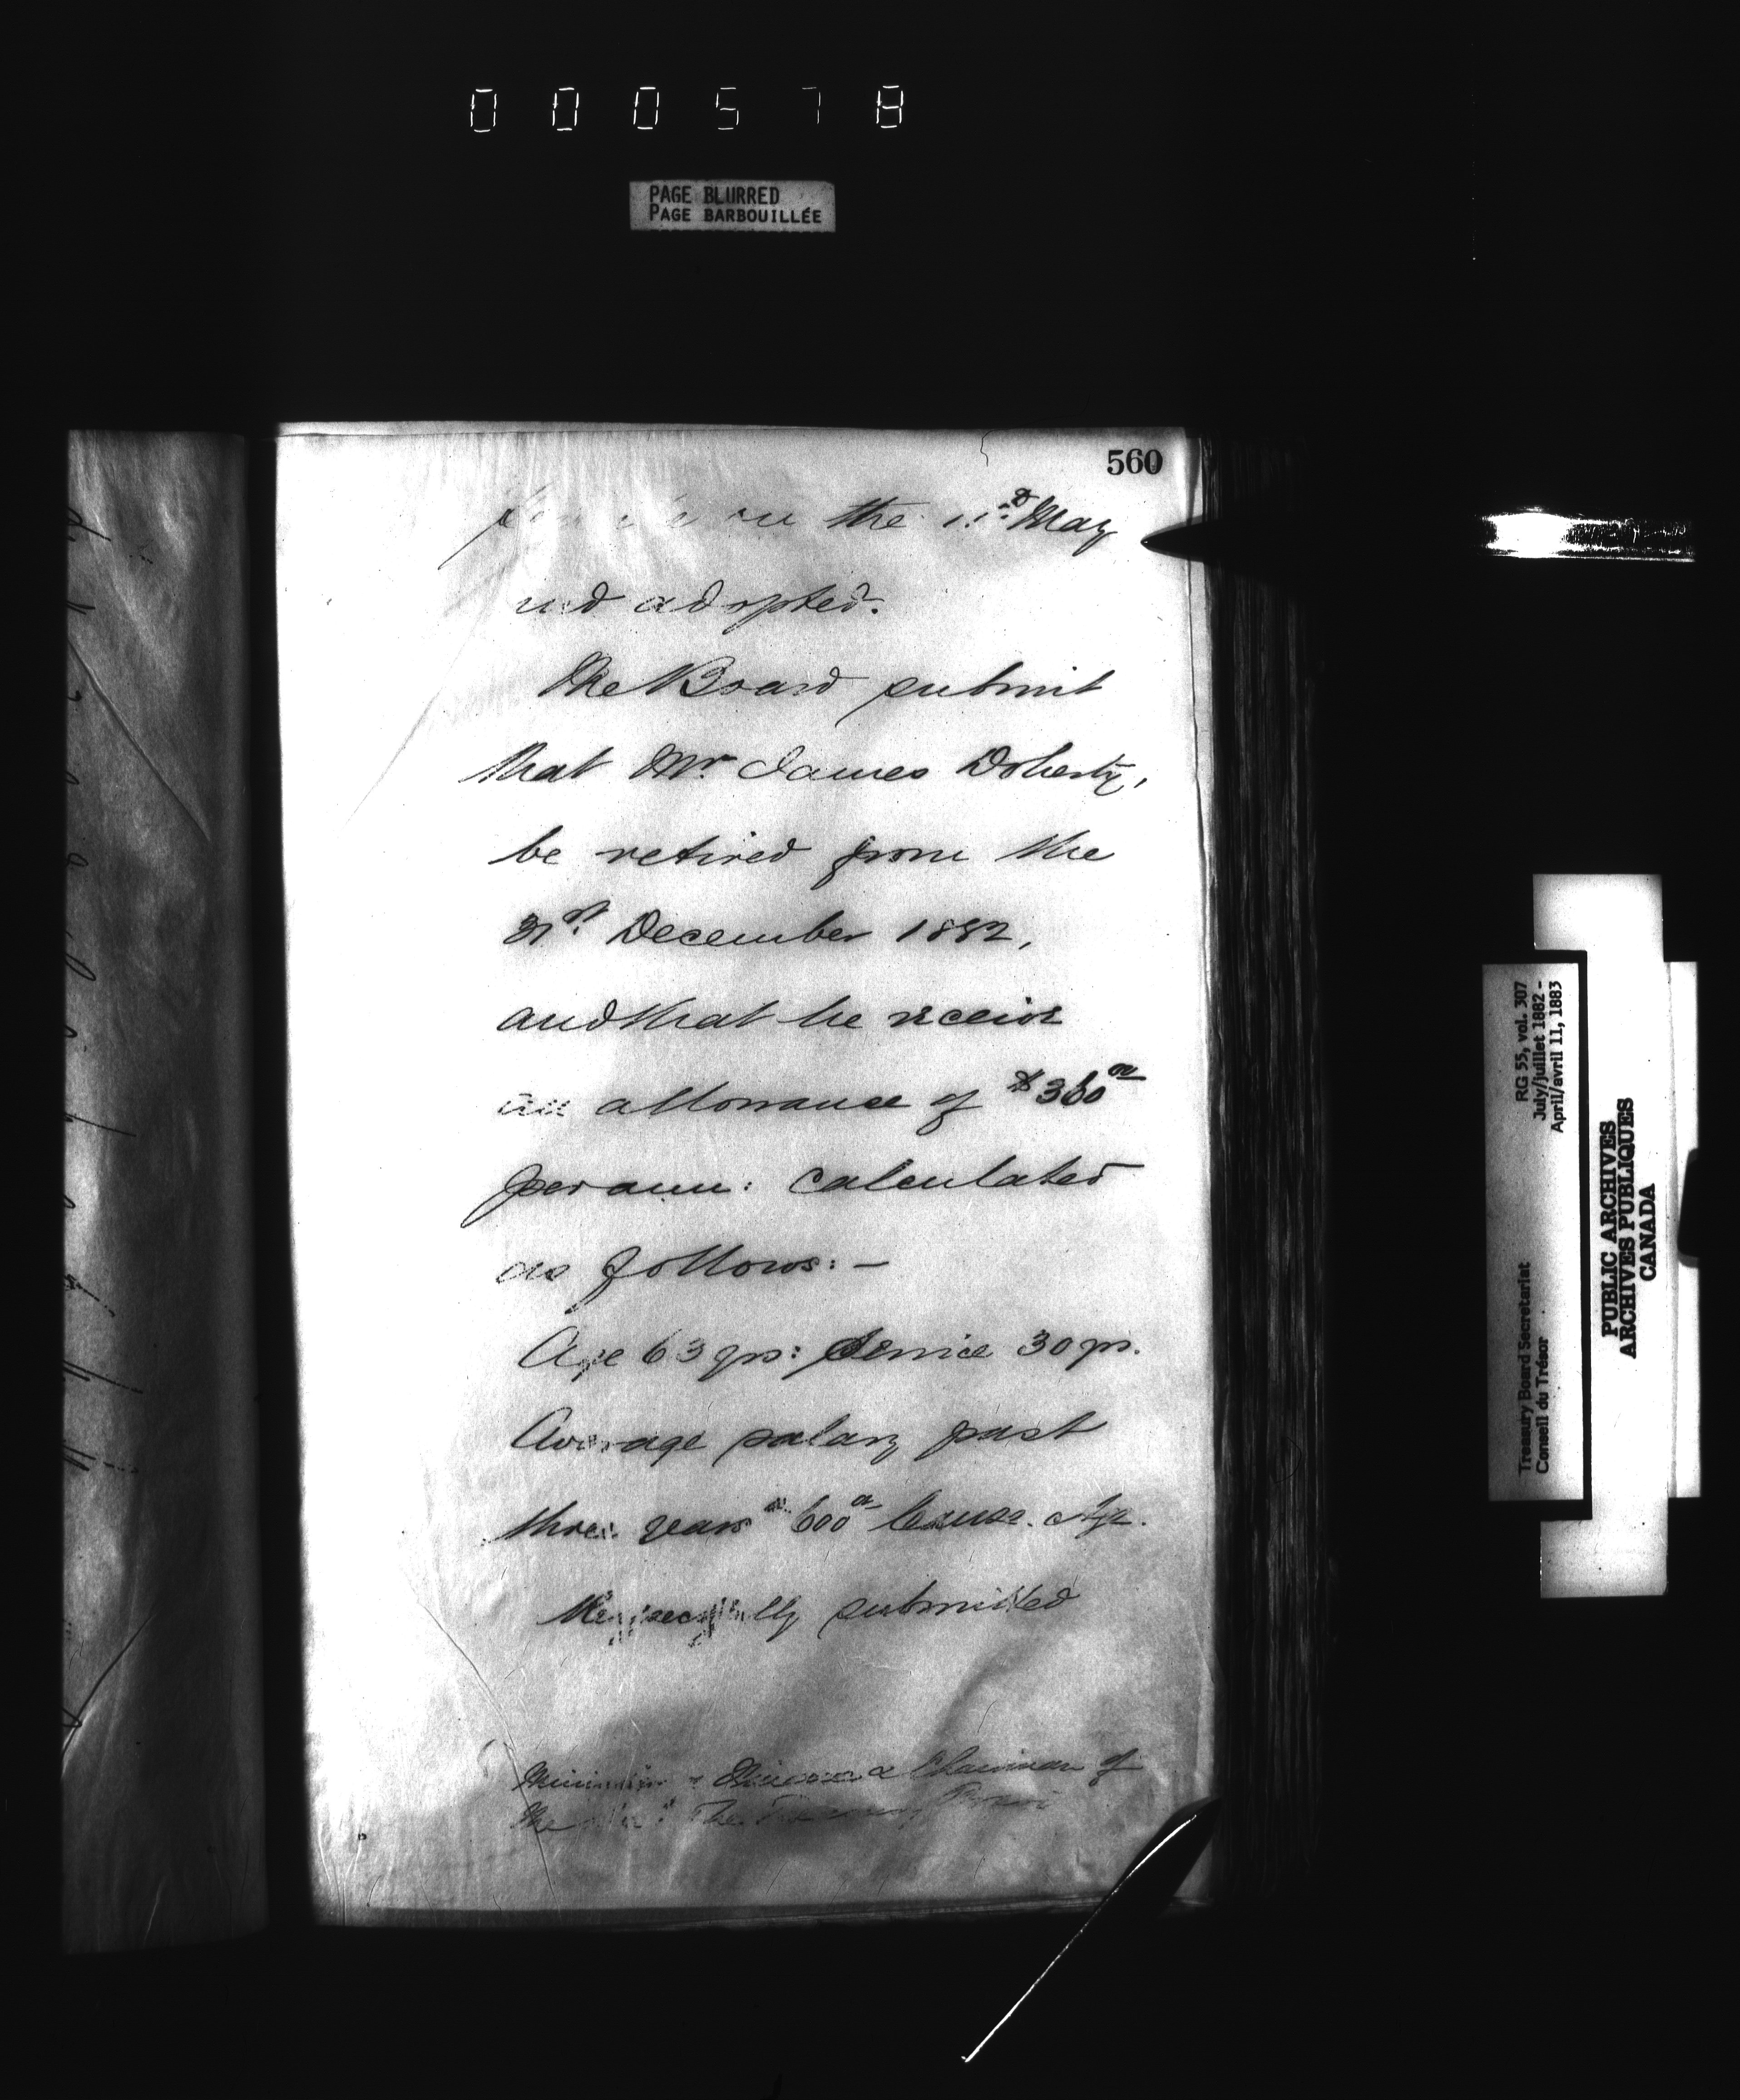 000578
PAGE BLURRED
PAGE BARBOUILLÉE
560
on the May
and adopted.
The Board submit
that Mr. James Doherty,
be retired from the
31st December 1882,
and that he receive
an allowance of $360 00
per ann: calculated
as follows:—
Age 63 yrs: Service 30 yrs.
Average salary past
three years $600 00 Cause. Age.
Respectfully submitted
Chairman of
The Treasury Board
RG 55, vol. 307
July/juillet 1882 -
April/avril 11, 1883
Treasury Board Secretariat
Conseil du Trésor
PUBLIC ARCHIVES
ARCHIVES PUBLIQUES
CANADA